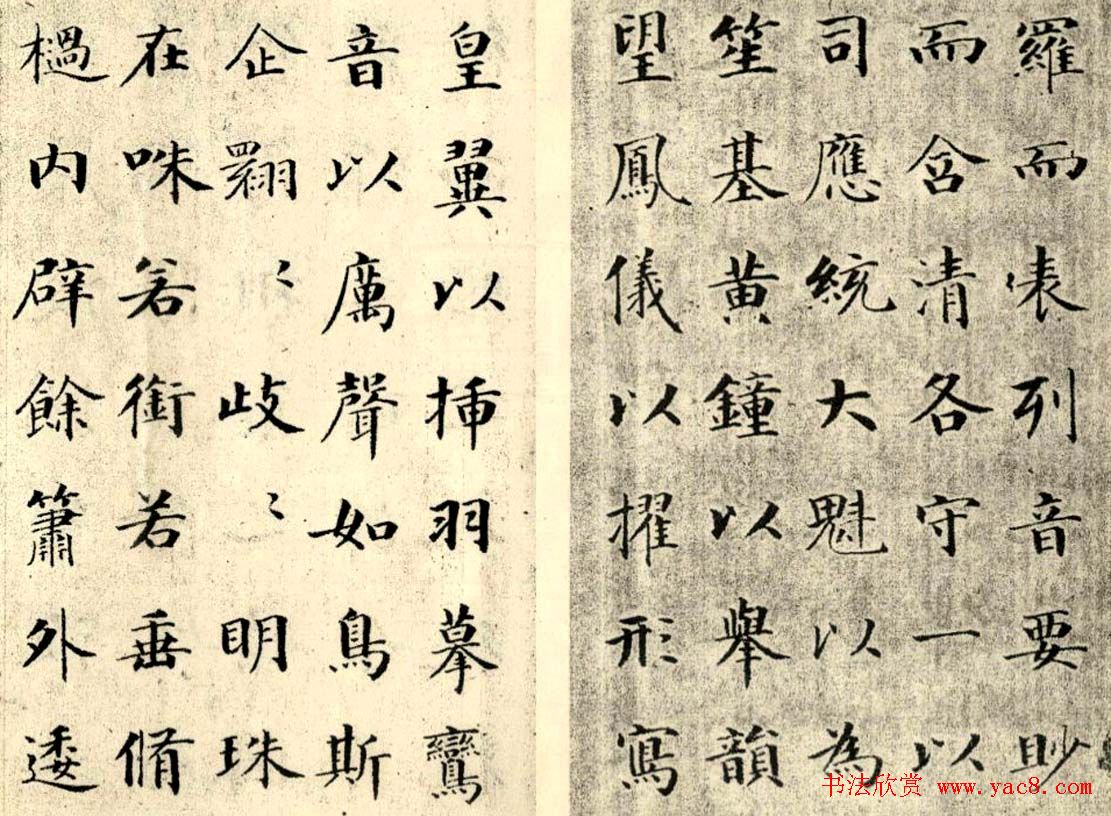 羅而表列音要眇
而含清各守一以
司應統大魁以為
笙基黃鐘以舉韻
望鳳儀以擢形寫
皇翼以插羽摹鸞
音以厲聲如鳥斯
企翾〻歧〻明珠
在咮若銜若垂脩
檛內辟餘簫外逶
书法欣赏 www.yac8.com